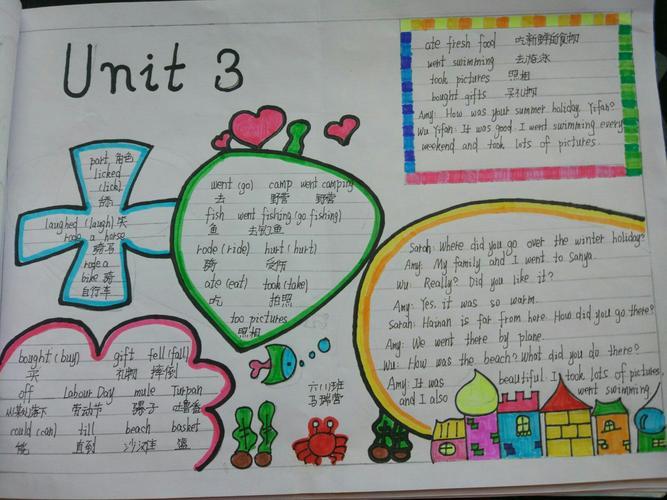 Unit 3
ate fresh food 吃新鲜食物
went swimming 去游泳
took pictures 照相
bought gifts 买礼物
Amy: How was your summer holiday. Yifan?
Wu Yifan: It was good I went swimming every
weekend and took lots of pictures
part 角色
licked
(lick)
舔
laughed (laugh)笑
rode a horse
骑马
rode a
bike 骑
自行车
went (go) camp went camping
去 野营 野营
fish went fishing (go fishing)
鱼 去钓鱼
rode (ride) hurt (hurt)
骑 受伤
ate (eat) took (take)
吃 拍照
too pictures
照相
Sarah: Where did you go over the winter holiday?
Amy: My family and I went to Sanya.
Wu: Really? Did you like it?
Amy: Yes, it was so warm.
Sarah: Hainan is far from here. How did you go there?
Amy: We went there by plane.
Wu: How was the beach? What did you do there?
Amy: It was beautiful. I took lots of pictures,
and I also went swimming
bought (buy) gift fell (fall)
买 礼物 摔倒
off Labour Day mule Turpan
从……落下 劳动节 骡子 吐鲁番
could (can) till beach basket
能 直到 沙滩 篮
六(1)班
马瑞营